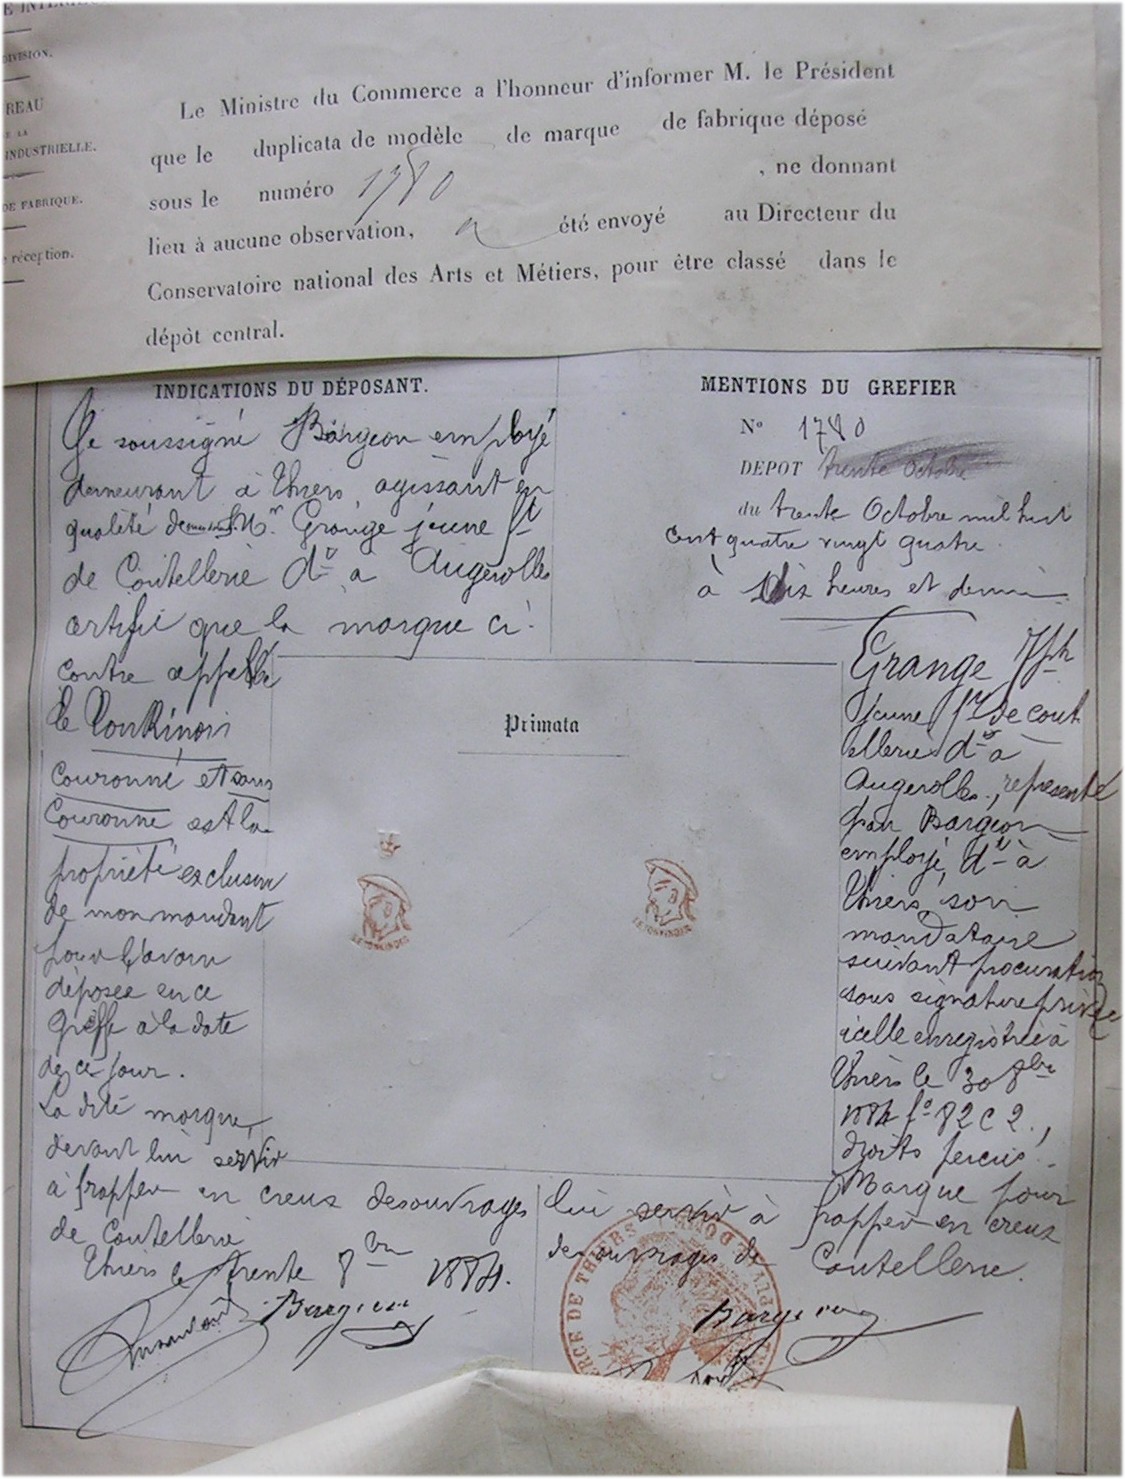 DIVISION.
REAU
E LA
INDUSTRIELLE.
DE FABRIQUE.
réception.
Le Ministre du Commerce a l'honneur d'informer M. le Président
que le duplicata de modèle de marque de fabrique déposé
sous le numéro 1780 , ne donnant
lieu à aucune observation, a été envoyé au Directeur du
Conservatoire national des Arts et Métiers, pour être classé dans le
dépôt central.
INDICATIONS DU DÉPOSANT.
Je soussigné Bargeon employé
demeurant à Thiers, agissant en
qualité de Mr. Grange jeune ft
de Coutellerie dt a Augerolles
certifie que la marque ci-
contre appellée
le Tonkinois
couronné et sans
couronne est la
propriété exclusive
de mon mandant
pour l'avoir
déposée en ce
greffe à la date
de ce jour.
La dite marque
devant lui servir
à frapper en creux des ouvrages
de Coutellerie
Thiers le trente 8bre 1884.
Bargeon
MENTIONS DU GREFIER
No 1780
DEPOT trente Octobre
du trente Octobre mil huit
cent quatre vingt quatre
à dix heures et demie
Grange Jph
jeune ft de cout
ellerie dt à
Augerolles, représenté
par Bargeon
employé, dt à
Thiers, son
mandataire
suivant procuration
sous signature privée
icelle enregistrée à
Thiers le 30 8bre
1884 fo 82 c 2.,
droits perçus.
Marque pour
lui servir à frapper en creux
des ouvrages de Coutellerie.
Bargeon
Primata
LE TONKINOIS
LE TONKINOIS
DE THIERS
PUY DE DOME